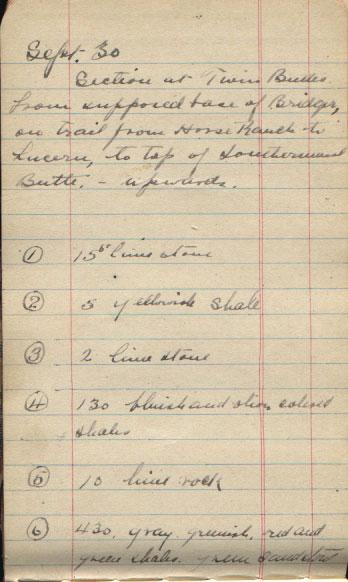 Sept. 30
Section at Twin Buttes.
From supposed base of Bridger,
on trail from Horse Ranch to
Lucern, to top of Southernmost
Butte. - upwards.
① 15 limestone
② 5 yellowish shale
③ 2 limestone
④ 130 bluish and olive colored
shales
⑤ 10 lime rock
⑥ 430, gray, greenish, red and
green shales. green sandstone